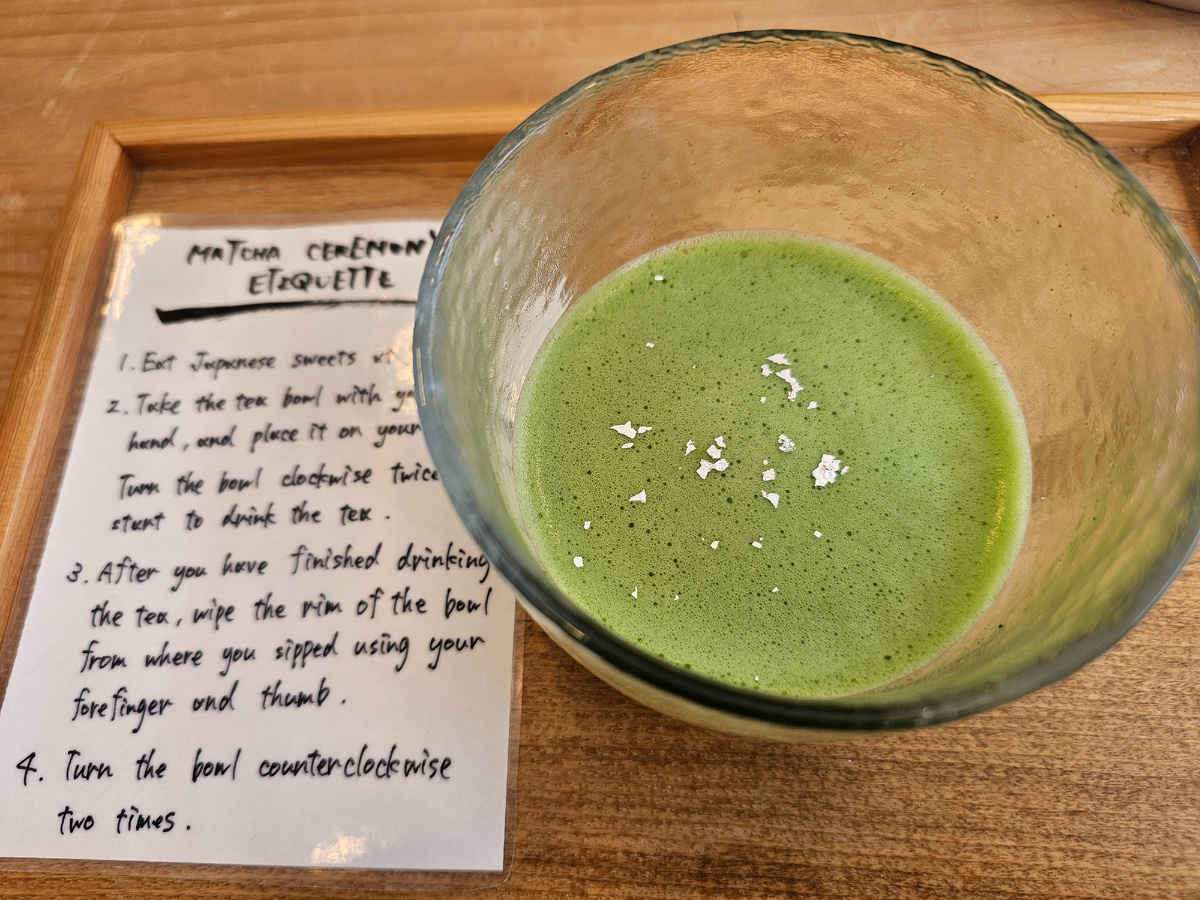 MATCHA CEREMONY
ETIQUETTE
1. Eat Japanese sweets
2. Take the tea bowl with
hand, and place it on your
Turn the bowl clockwise twice
start to drink the tea.
3. After you have finished drinking
the tea, wipe the rim of the bowl
from where you sipped using your
forefinger and thumb.
4. Turn the bowl counterclockwise
two times.